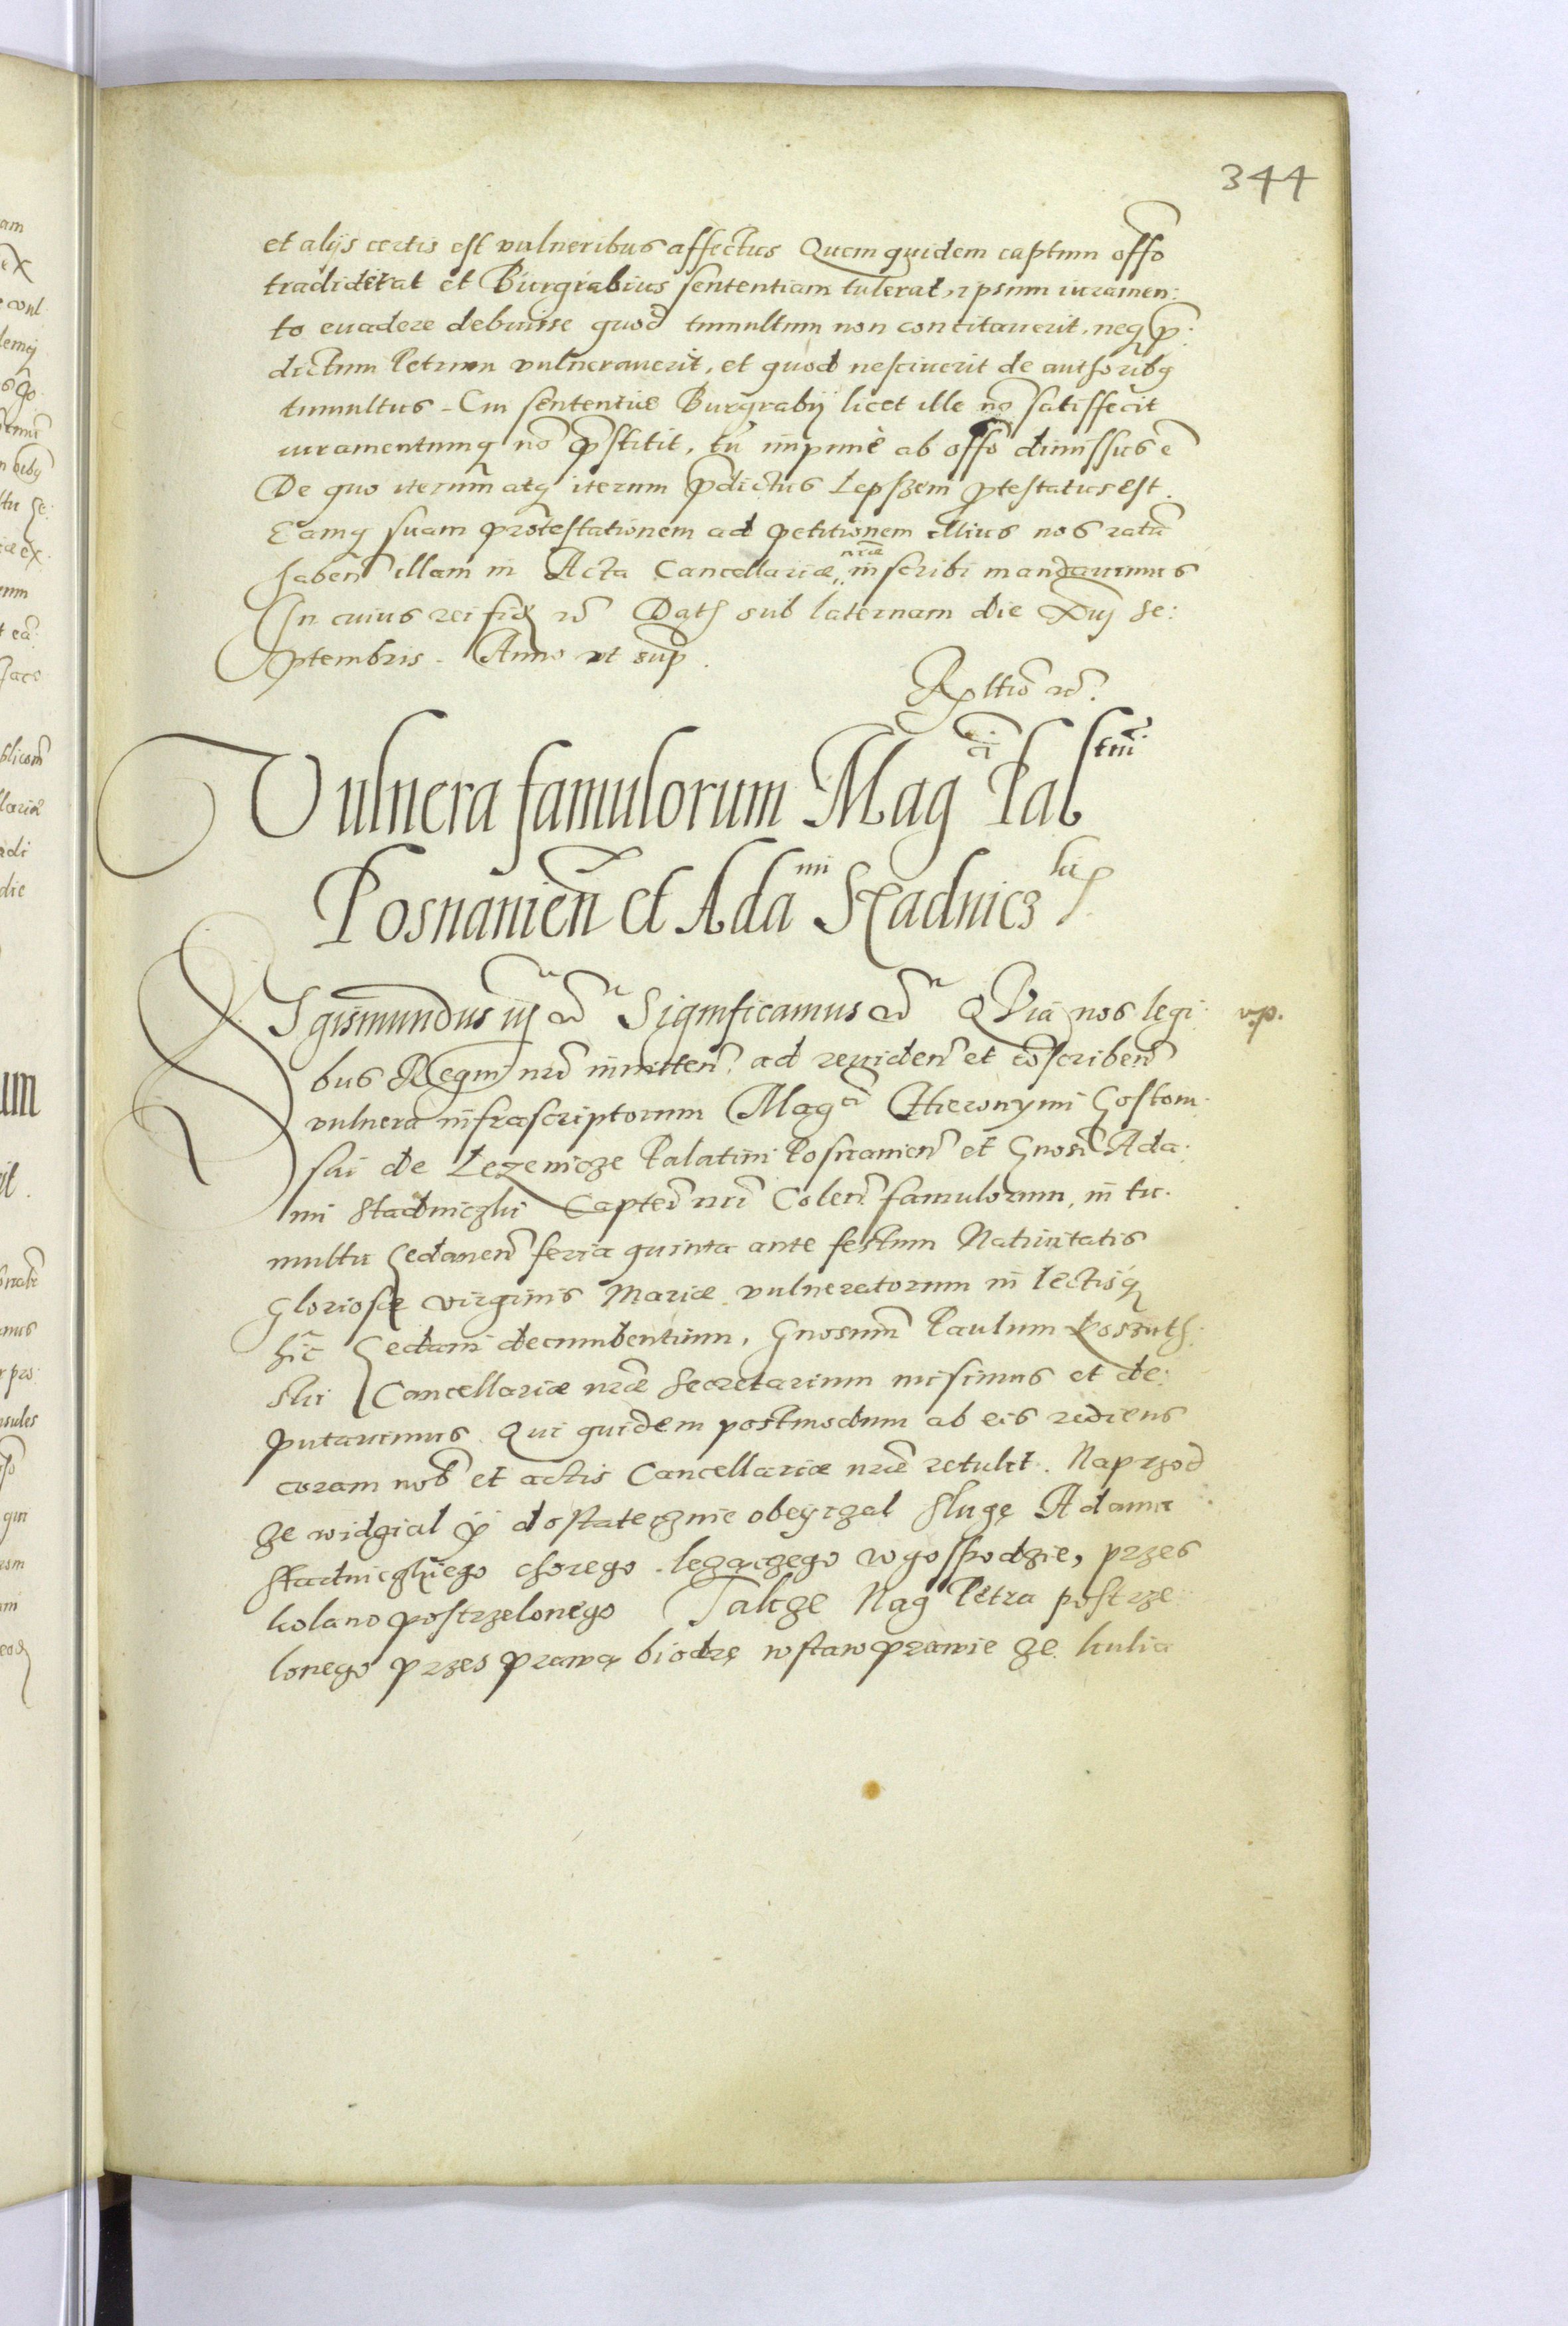 344
et alijs certis est vulneribus affectus Quem quidem captum offo
tradiderat et Burgrabius sententiam tulerat, ipsum iuramen:
to euadere debuisse quod tumultum non concitauerit, neq, p̄:
dictum Petrum vulnerauerit, et quod nesciuerit de authoribq
tumultus. Cui sententiae Burgrabij licet ille nō satisfecit
iuramentumq nō p̄stitit, tn̄ impunè ab offō dimissus ē
De quo iterum atq iterum p̄dictus Lepszem ptestatus est.
Eamq suam protestationem ad petitionem illius nos ratā
haben̄ illam in Acta Cancellariæ nr̄æ inscribi mandauimus
In cuius rei fid Dath sub laternam die xvij Se:
ptembris. Anno vt sup.
Vulnera famulorum Mag^ci Pal^tini
Posnanien̄ et Ada^mi Stadnicz^ki
SIgismundus iij Significamus QVia nos legi
bus Regni nr̄i innitten̄ ad reuiden̄ et cōscriben̄
vulnera infrascriptorum Mag^ci Hieronymi Gostom:
ski de Lezenicze Palatini Posnanien̄ et Gnosi Ada:
mi Stadniczki Captei nr̄i Colen̄ famulorum, in tu:
multu Gedanen̄ feria quinta ante festum Natiuitatis
Gloriosæ virginis Mariæ vulneratorum in lectisq
hic Gedani decumbentium, Gnosum Paulum Koszuth:
ski Cancellariæ nr̄æ Secretarium misimus et de:
putauimus. Qui quidem postmodum ab eis rediens
coram nob et actis Cancellariæ nr̄æ retulit. Naprzod
ze widzial y dostatecznie obeyrzal sługę Adama
Stadniczkiego chorego lezączego w gospodzie, przes
kolano postrzelonego Takze Nag Petra postrze
lonego przes prawą biodrę w staw prawie ze kulia
v.p.